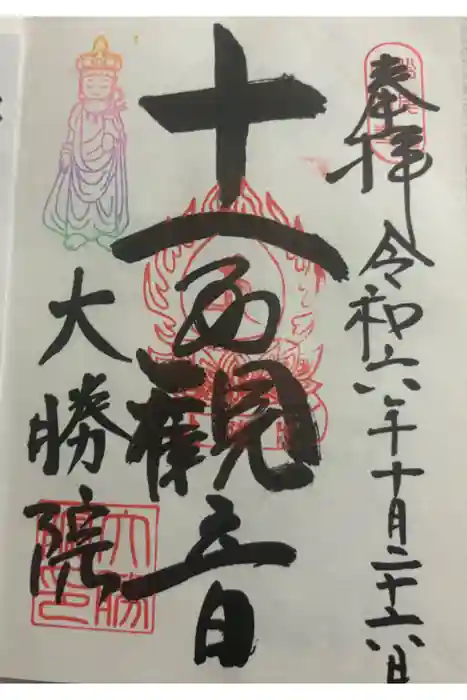 奉拝
令和六年十月二十六日
十一面観音
大勝院
大勝院印